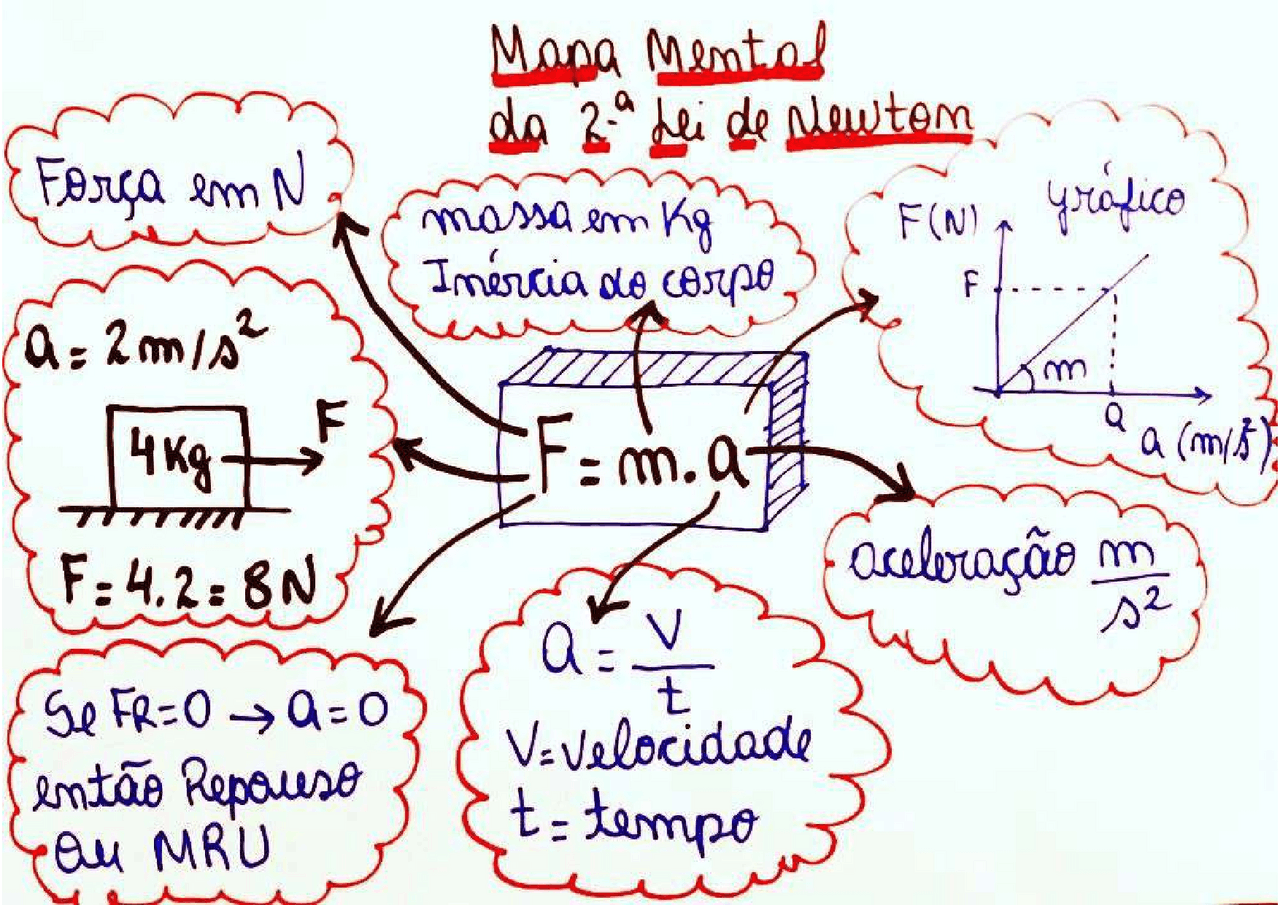 Mapa Mental
da 2.ª Lei de Newton
Força em N
massa em Kg
Inércia do corpo
gráfico
F(N)
F
m
a
a (m/s²)
a = 2 m/s²
4 Kg
F
F = 4.2 = 8 N
F = m.a
aceleração m/s²
Se FR=0 → a = 0
então Repouso
ou MRU
a = V/t
V = Velocidade
t = tempo